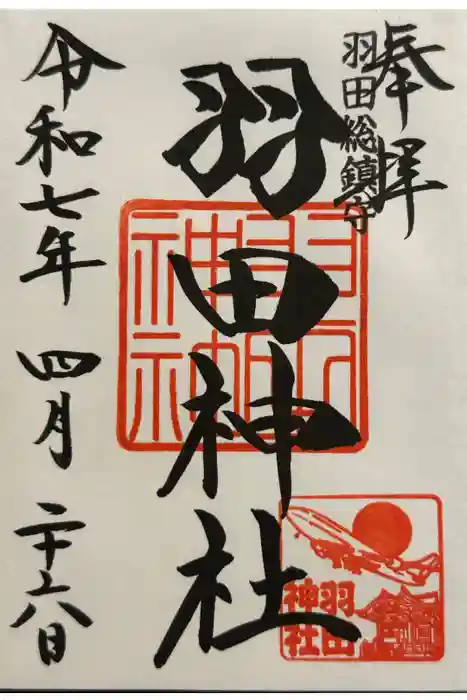 奉拝
羽田総鎮守
羽田神社
令和七年 四月 二十六日
羽田
神社
羽田
神社